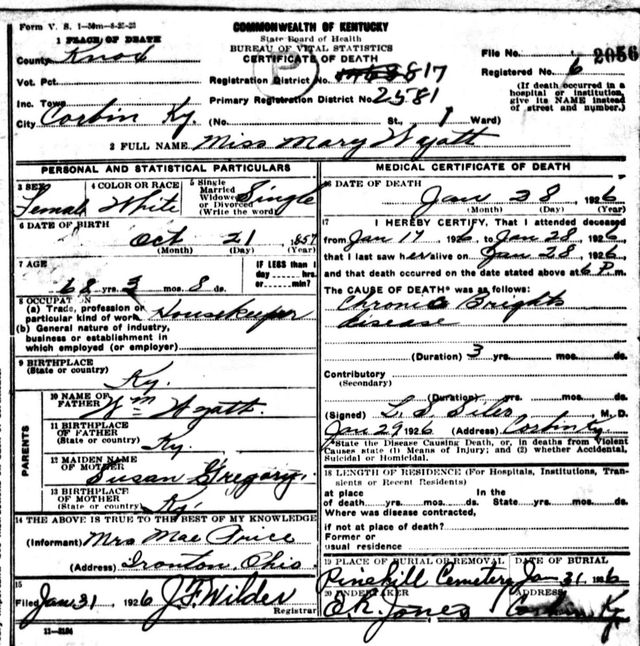 Form V. S. 1-50m-8-20-23
COMMONWEALTH OF KENTUCKY
State Board of Health
BUREAU OF VITAL STATISTICS
CERTIFICATE OF DEATH
1 PLACE OF DEATH
County Knox
File No. 2056
Registration District No. 817
Registered No. 6
Vot. Pct.
Inc. Town
Primary Registration District No. 2581
(If death occurred in a hospital or institution, give its NAME instead of street and number.)
City Corbin Ky. (No. St., Ward)
2 FULL NAME Miss Mary Wyatt
PERSONAL AND STATISTICAL PARTICULARS
3 SEX Female
4 COLOR OR RACE White
5 Single Married Widowed or Divorced (Write the word) Single
6 DATE OF BIRTH
Oct 21 1857
(Month) (Day) (Year)
7 AGE
68 yrs. 3 mos. 8 ds.
IF LESS than 1 day hrs. or min?
8 OCCUPATION
(a) Trade, profession or particular kind of work Housekeeper
(b) General nature of industry, business or establishment in which employed (or employer)
9 BIRTHPLACE
(State or country) Ky.
PARENTS
10 NAME OF FATHER Wm Wyatt.
11 BIRTHPLACE OF FATHER
(State or country) Ky.
12 MAIDEN NAME OF MOTHER Susan Gregory.
13 BIRTHPLACE OF MOTHER
(State or country) Ky.
14 THE ABOVE IS TRUE TO THE BEST OF MY KNOWLEDGE
(Informant) Mrs Mae
(Address) Ironton, Ohio.
15
Filed Jan 31, 1926 J.F. Wilder
Registrar
11-3184
MEDICAL CERTIFICATE OF DEATH
16 DATE OF DEATH
Jan 28 1926
(Month) (Day) (Year)
17 I HEREBY CERTIFY, That I attended deceased
from Jan 17 1926, to Jan 28 1926,
that I last saw her alive on Jan 28 1926,
and that death occurred on the date stated above at 6 P.m.
The CAUSE OF DEATH* was as follows:
Chronic Brights
disease
(Duration) 3 yrs. mos. ds.
Contributory
(Secondary)
(Duration) yrs. mos. ds.
(Signed) M. D.
Jan 29 1926 (Address) Corbin Ky
*State the Disease Causing Death, or, in deaths from Violent Causes state (1) Means of Injury; and (2) whether Accidental, Suicidal or Homicidal.
18 LENGTH OF RESIDENCE (For Hospitals, Institutions, Transients or Recent Residents)
at place In the
of death yrs. mos. ds. State yrs. mos. ds.
Where was disease contracted,
if not at place of death?
Former or
usual residence
19 PLACE OF BURIAL OR REMOVAL DATE OF BURIAL
Pinehill Cemetery Jan 31 1926
20 UNDERTAKER ADDRESS
O.R. Jones Corbin Ky